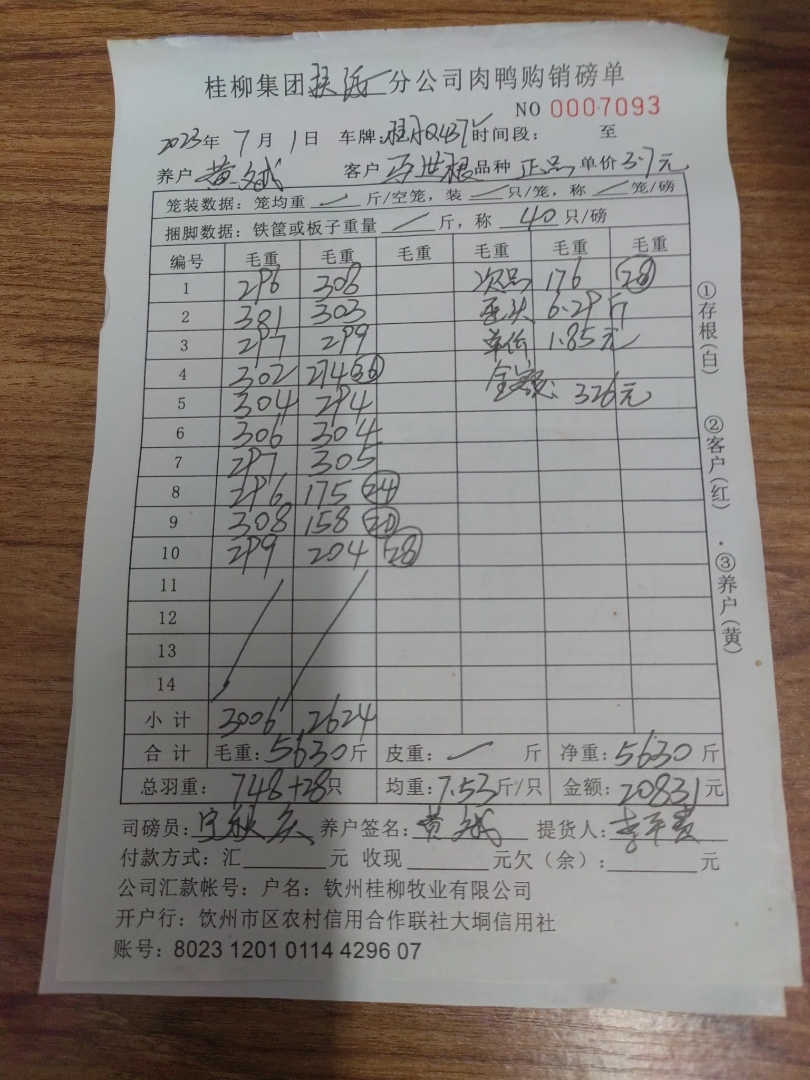 桂柳集团 分公司肉鸭购销磅单
NO 0007093
2023年 7月 1日 车牌: 时间段: 至
养户 黄 斌 客户 马世根 品种 正品 单价 3.7元
笼装数据: 笼均重 斤/空笼, 装 只/笼, 称 笼/磅
捆脚数据: 铁筐或板子重量 斤, 称 40 只/磅
编号 毛重 毛重 毛重 毛重 毛重 毛重
1 296 308 次品 176 28
2 381 303 6.29斤
3 297 299 单价 1.85元
4 302 274 36 金额: 326元
5 304 294
6 306 304
7 297 305
8 296 175 24
9 308 158 20
10 299 204 28
11
12
13
14
小计 3006 2624
合计 毛重: 5630斤 皮重: 斤 净重: 5630斤
总羽重: 748+28只 均重: 7.53斤/只 金额: 20831元
司磅员: 养户签名: 黄 斌 提货人:
付款方式: 汇 元 收现 元欠(余): 元
公司汇款帐号: 户名: 钦州桂柳牧业有限公司
开户行: 钦州市区农村信用合作联社大垌信用社
账号: 8023 1201 0114 4296 07
①存根(白)
②客户(红)
③养户(黄)